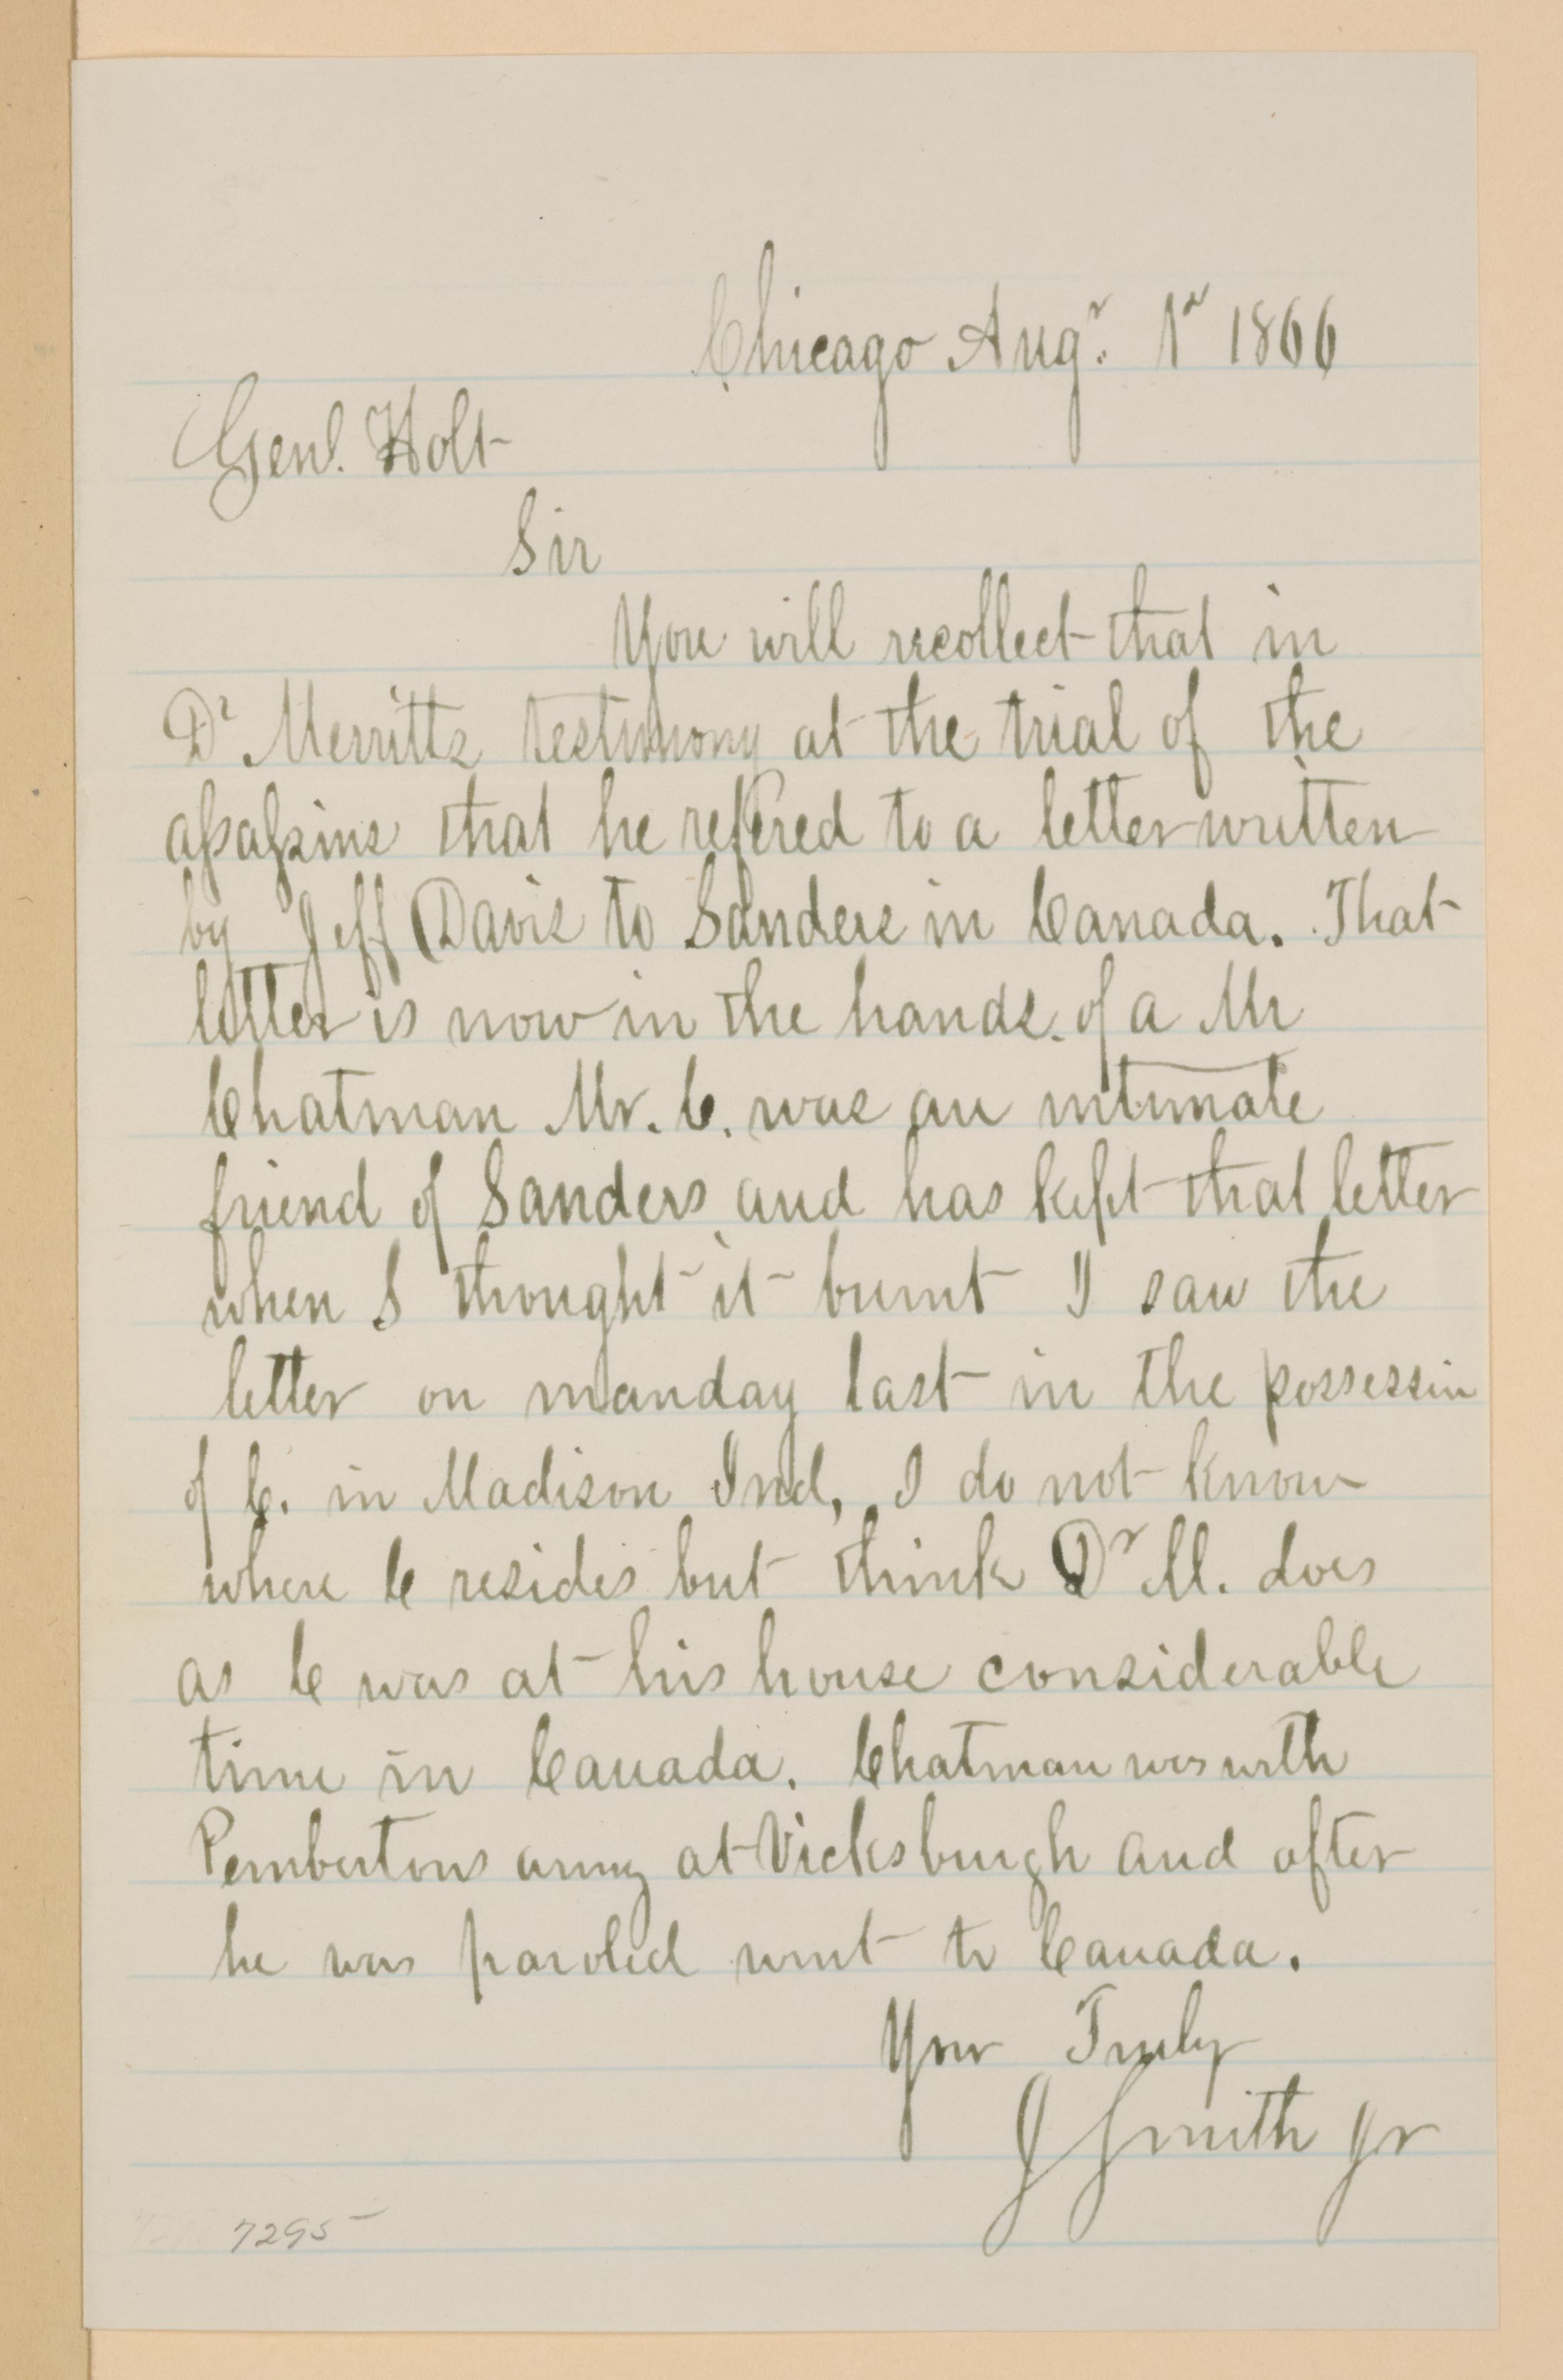 Chicago Augt. 1st 1866
Genl. Holt
Sir
You will recollect that in
Dr Merritts testimony at the trial of the
assassins that he refered to a letter written
by Jeff Davis to Sanders in Canada. That
letter is now in the hands of a Mr
Chatman Mr. C. was an intimate
friend of Sanders and has kept that letter
when I thought it burnt I saw the
letter on manday last in the possessin
of C. in Madison Ind, I do not know
where C resides but think Dr M. does
as C was at his house considerable
time in Canada. Chatman was with
Pembertons army at Vicksburgh and after
he was paroled went to Canada.
Your Truly
J Smith Jr
7295